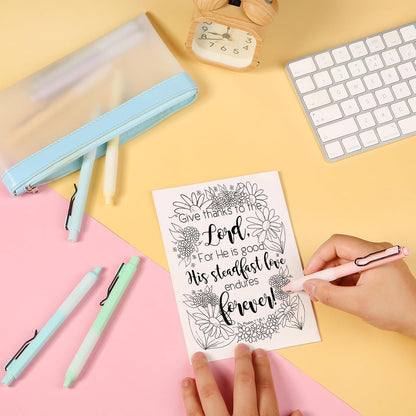 Give thanks to the
Lord,
For He is good.
His steadfast love
endures
forever!